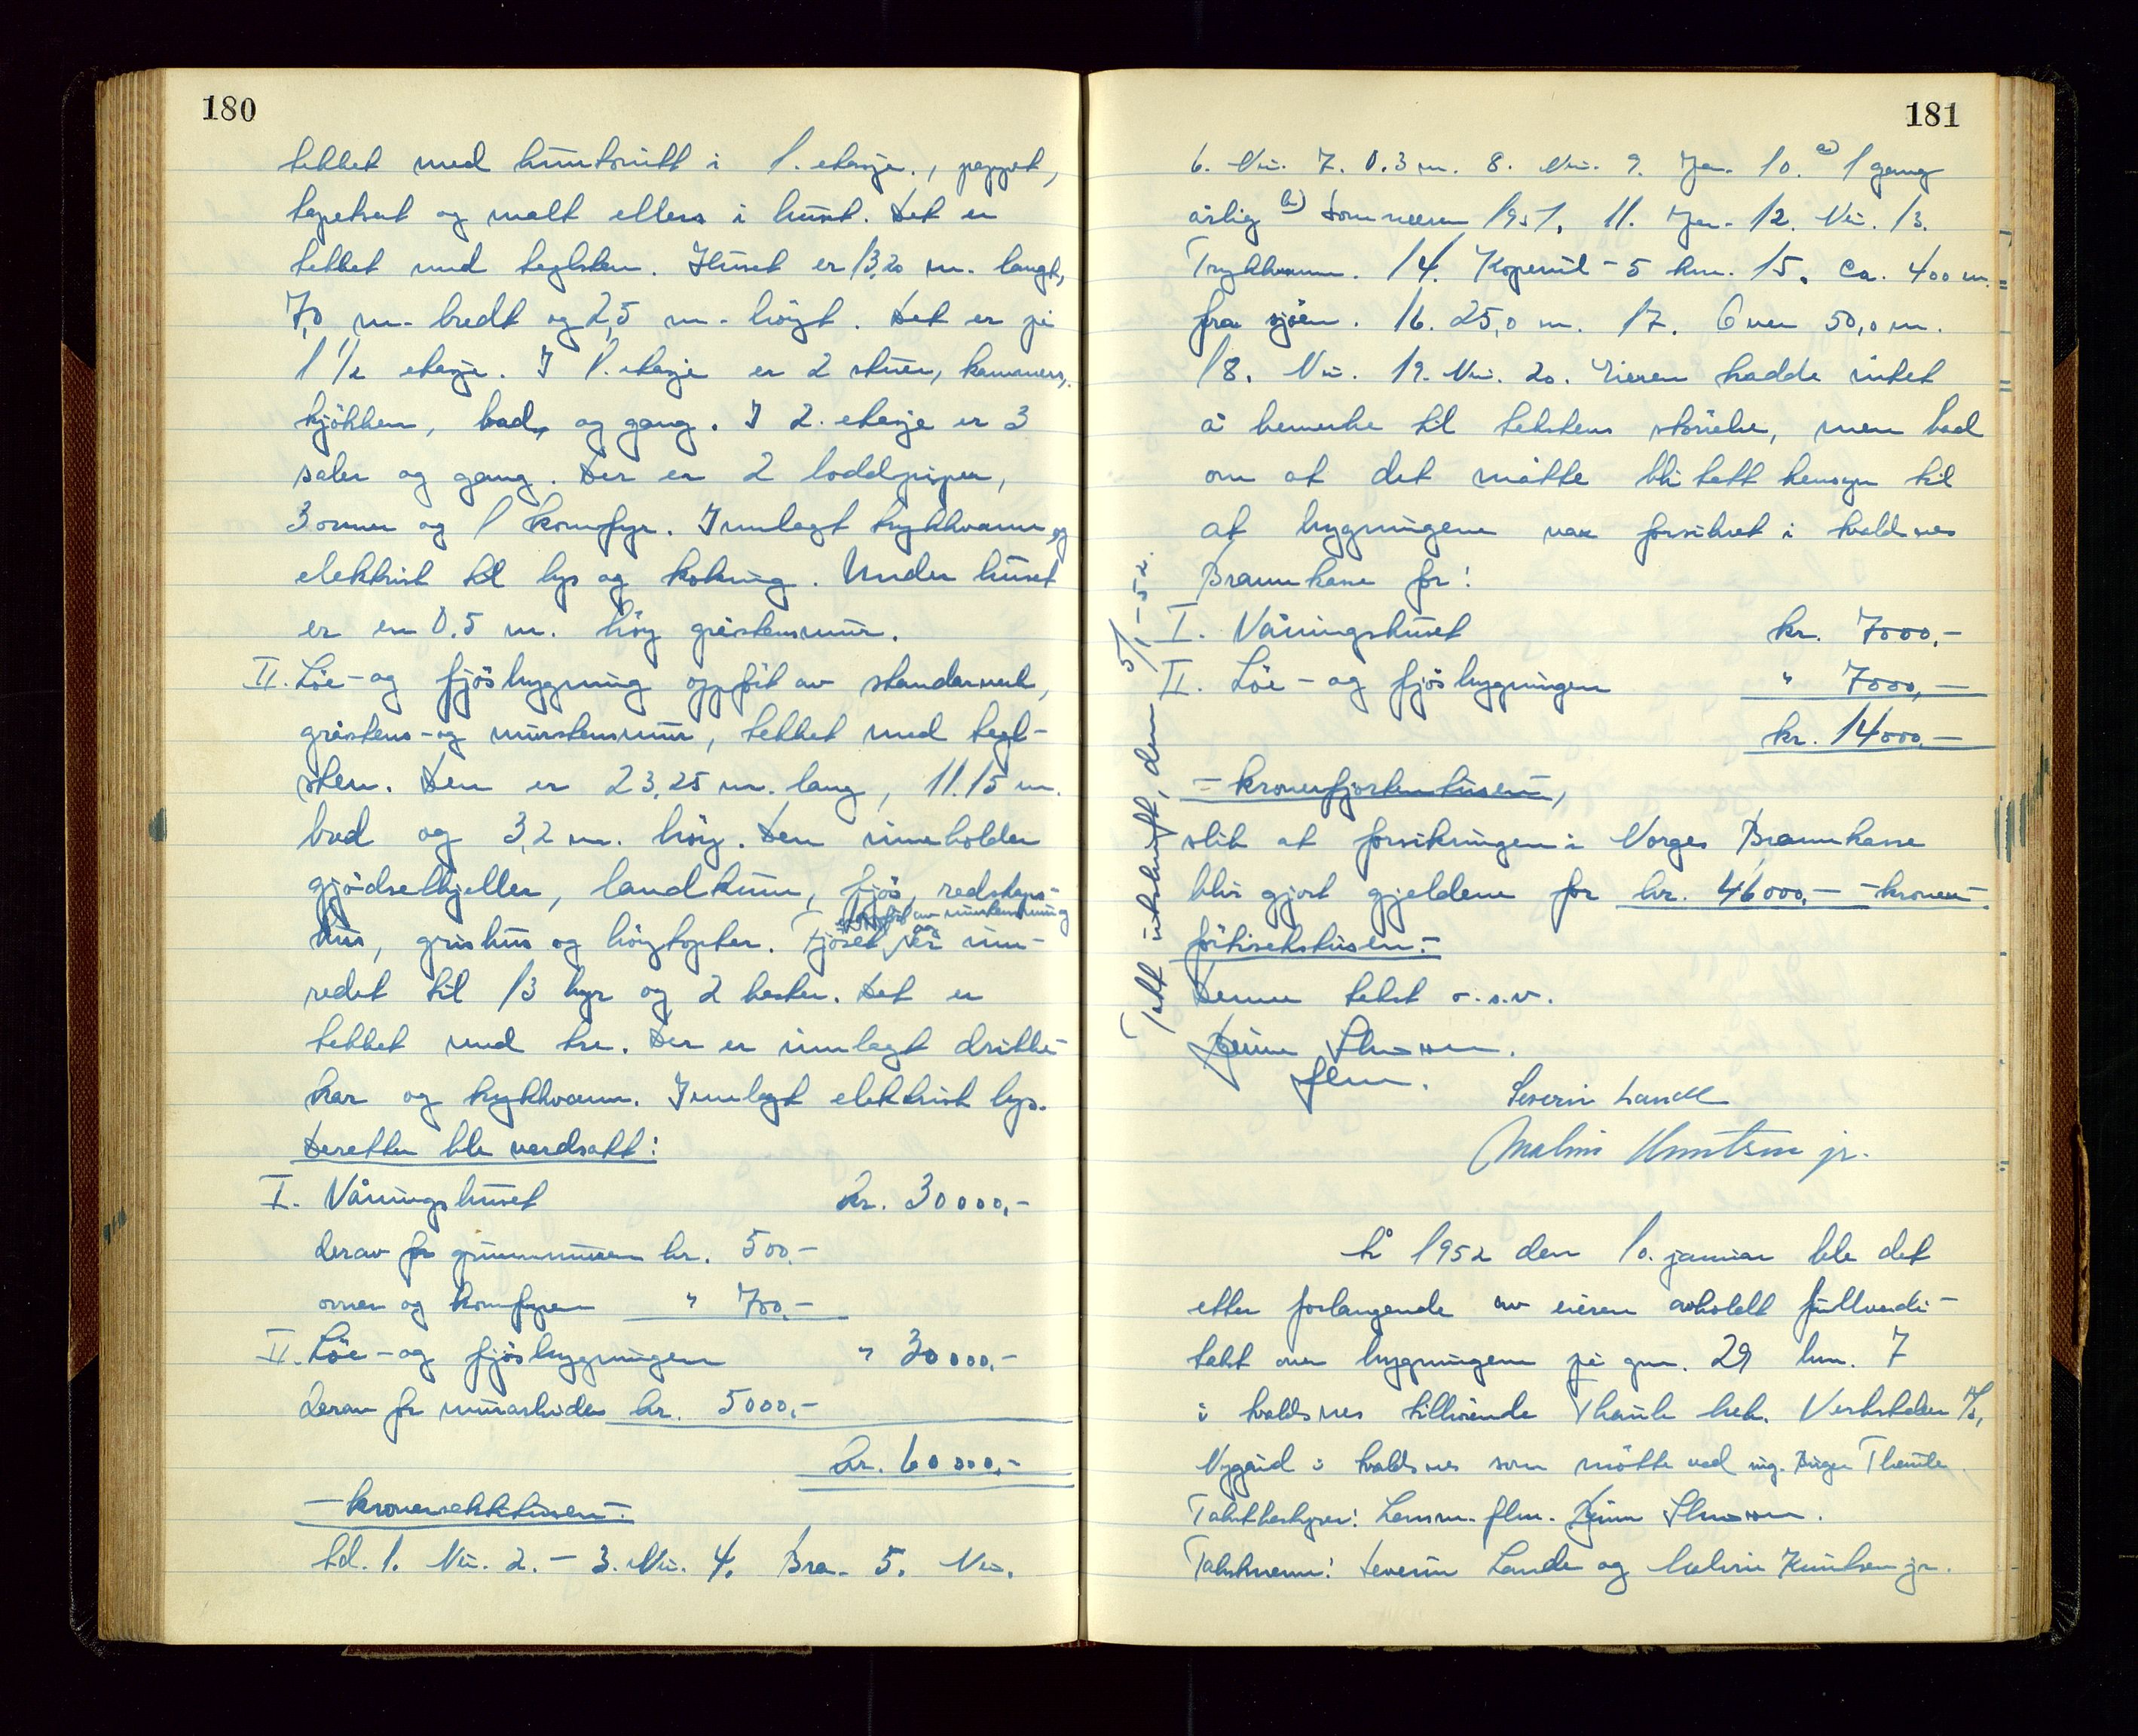 180
tekket med huntonitt i 1. etasje., pappet,
tapetsert og malt ellers i huset. Det er
tekket med teglsten. Huset er 13,20 m. langt,
7,0 m. bredt og 2,5 m. høigt. Det er på
1 1/2 etasje. I 1. etasje er 2 stuer, kammers,
kjøkken, bad, og gang. I 2. etasje er 3
saler og gang. Der er 2 loddpiper,
3 ovner og 1 komfyr. Innlagt trykkvann og
elektrisk til lys og koking. Under huset
er en 0.5 m. høy gråstensmur.
II. Løe- og fjøsbygning oppført av standarverk,
gråstens- og murstensmur, tekket med tegl-
sten. Den er 23,25 m. lang, 11.15 m.
bred og 3,2 m. høig. Den inneholder
gjødselkjeller, landkum, fjøs, redskaps-
hus, grishus og høytopter. Fjøset er oppført av murstensmur og er inn-
redet til 13 kyr og 2 hester. Det er
tekket med tre. Der er innlagt drikke-
kar og trykkvann. Innlagt elektrisk lys.
Deretter ble verdsatt:
I. Våningshuset kr. 30000,-
derav for grunnmuren kr. 500.-
ovner og komfyren " 700.-
II. Løe- og fjøsbygningen " 30000,-
derav for murarbeider kr. 5000,-
kr. 60000,-
- kronersekstitusen -
Td. 1. Nei. 2. - 3. Nei. 4. Bra. 5. Nei.
181
6. Nei. 7. 0.3 m. 8. Nei. 9. Ja. 10. a) 1 gang
årlig b) Sommeren 1951, 11. Ja. 12. Nei. 13.
Trykkvann. 14. Kopervik - 5 km. 15. Ca. 400 m.
fra sjøen. 16. 25,0 m. 17. Over 50,0 m.
18. Nei. 19. Nei. 20. Eieren hadde intet
å bemerke til takstens størrelse, men bad
om at det måtte bli tatt hensyn til
at bygningene var forsikret i Avaldsnes
Brannkasse for:
I. Våningshuset kr. 7000,-
II. Løe- og fjøsbygningen " 7000,-
kr. 14000,-
- kronerfjortentusen -,
slik at forsikringen i Norges Brannkasse
blir gjort gjeldene for kr. 46000,- - kroner-
førtisekstusen -
Denne takst o.s.v.
flm.
Severin Lande
Malvin Knutsen jr.
Tatt utskrift, den 5/1-52.
År 1952 den 10. januar ble det
etter forlangende av eieren avholdt fullverdi-
takst over bygningene på gnr. 29 bnr. 7
i Avaldsnes tilhørende Thaule Mek. Verksteder A/S,
Nygård i Avaldsnes som møtte ved ing. Birger Thaule.
Takstbestyrer: Lensm. flm.
Takstmenn: Severin Lande og Malvin Knutsen jr.